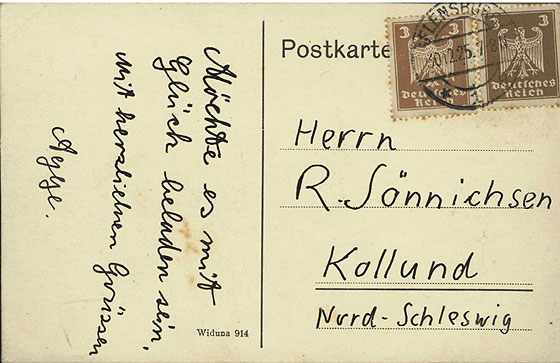 Möchte es mit
Glück beladen sein.
Mit herzlichen Grüssen
Agge.
Widuna 914
Postkarte
3 3
Deutsches
Reich
3 3
Deutsches
Reich
FLENSBURG
30.12.25.7-8N
Herrn
R. Sönnichsen
Kollund
Nord-Schleswig